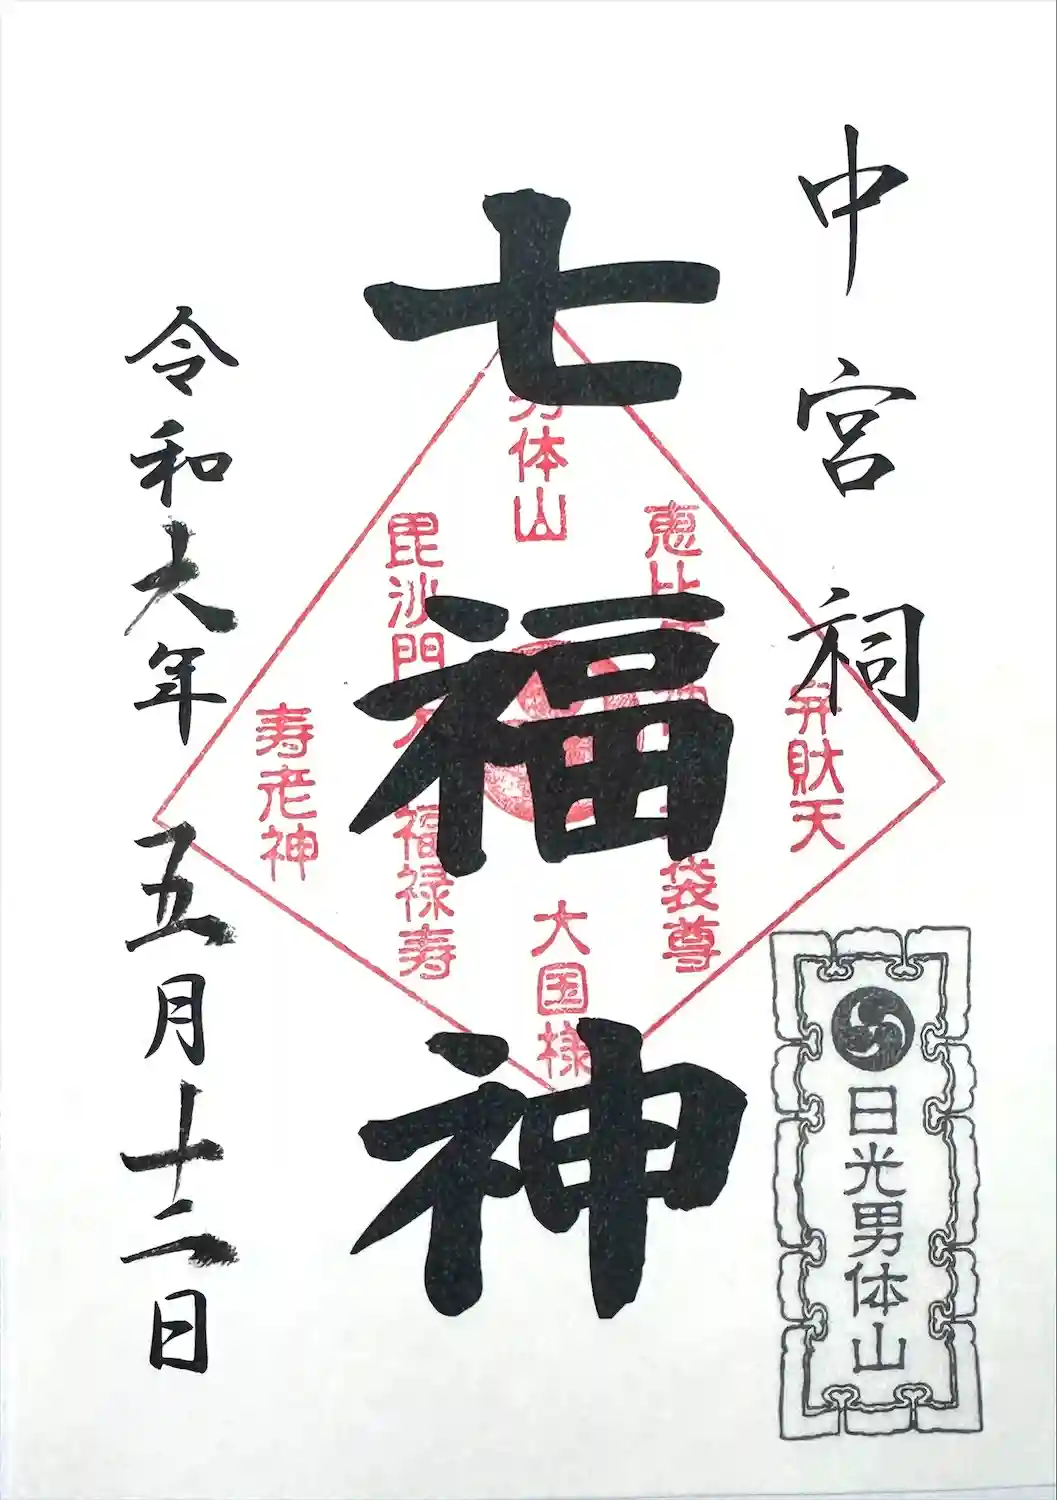 中宮祠
日光男体山
七福神
男体山
弁財天
恵比
袋尊
大国様
毘沙門天
福禄寿
寿老神
令和六年五月十二日